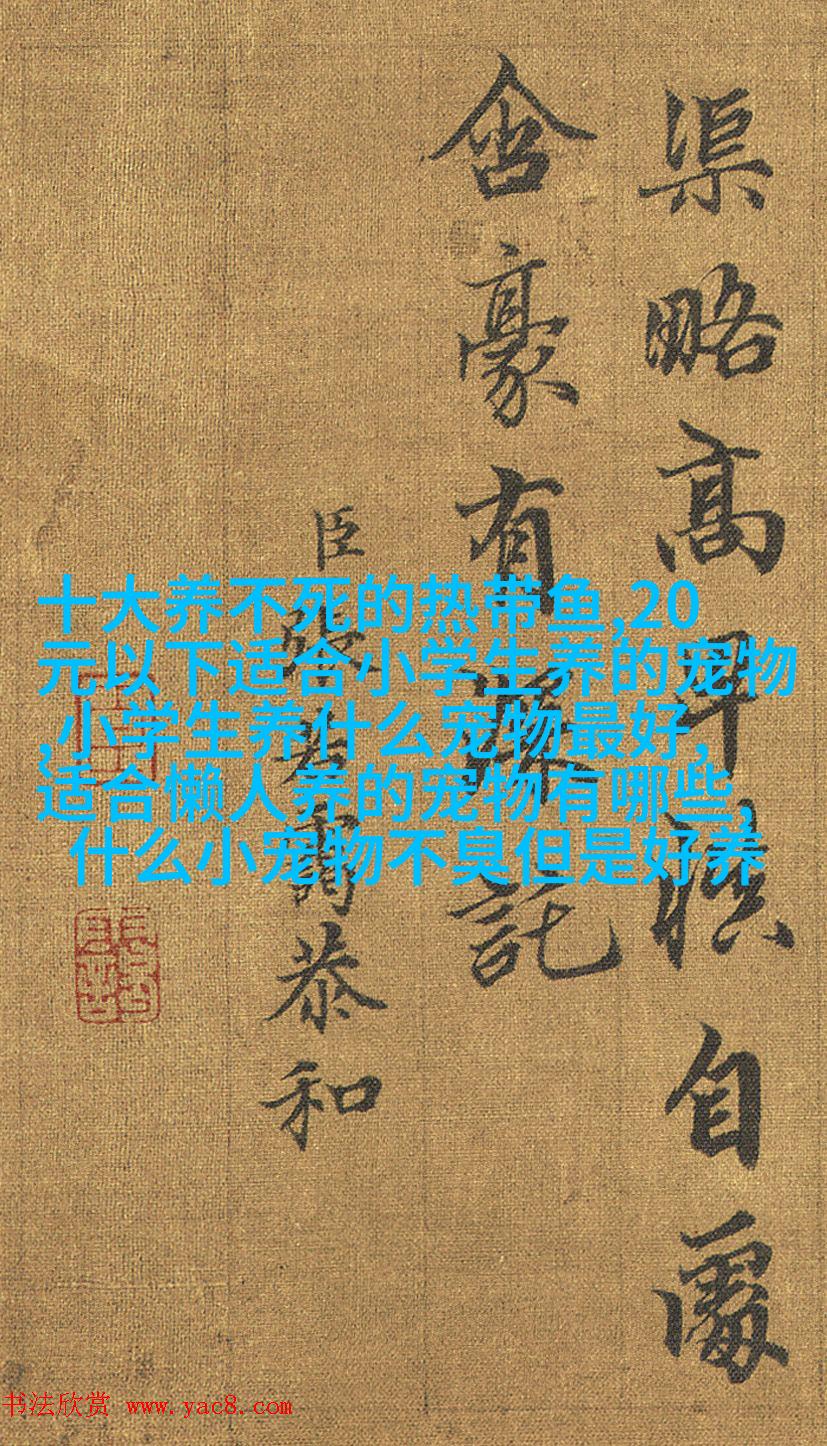 渠略高自
含豪有託
臣張若靄恭和
十大养不死的热带鱼,20
元以下适合小学生养的宠物
,小学生养什么宠物最好,
适合懒人养的宠物有哪些,
什么小宠物不臭但是好养
书法欣赏 www.yac8.com